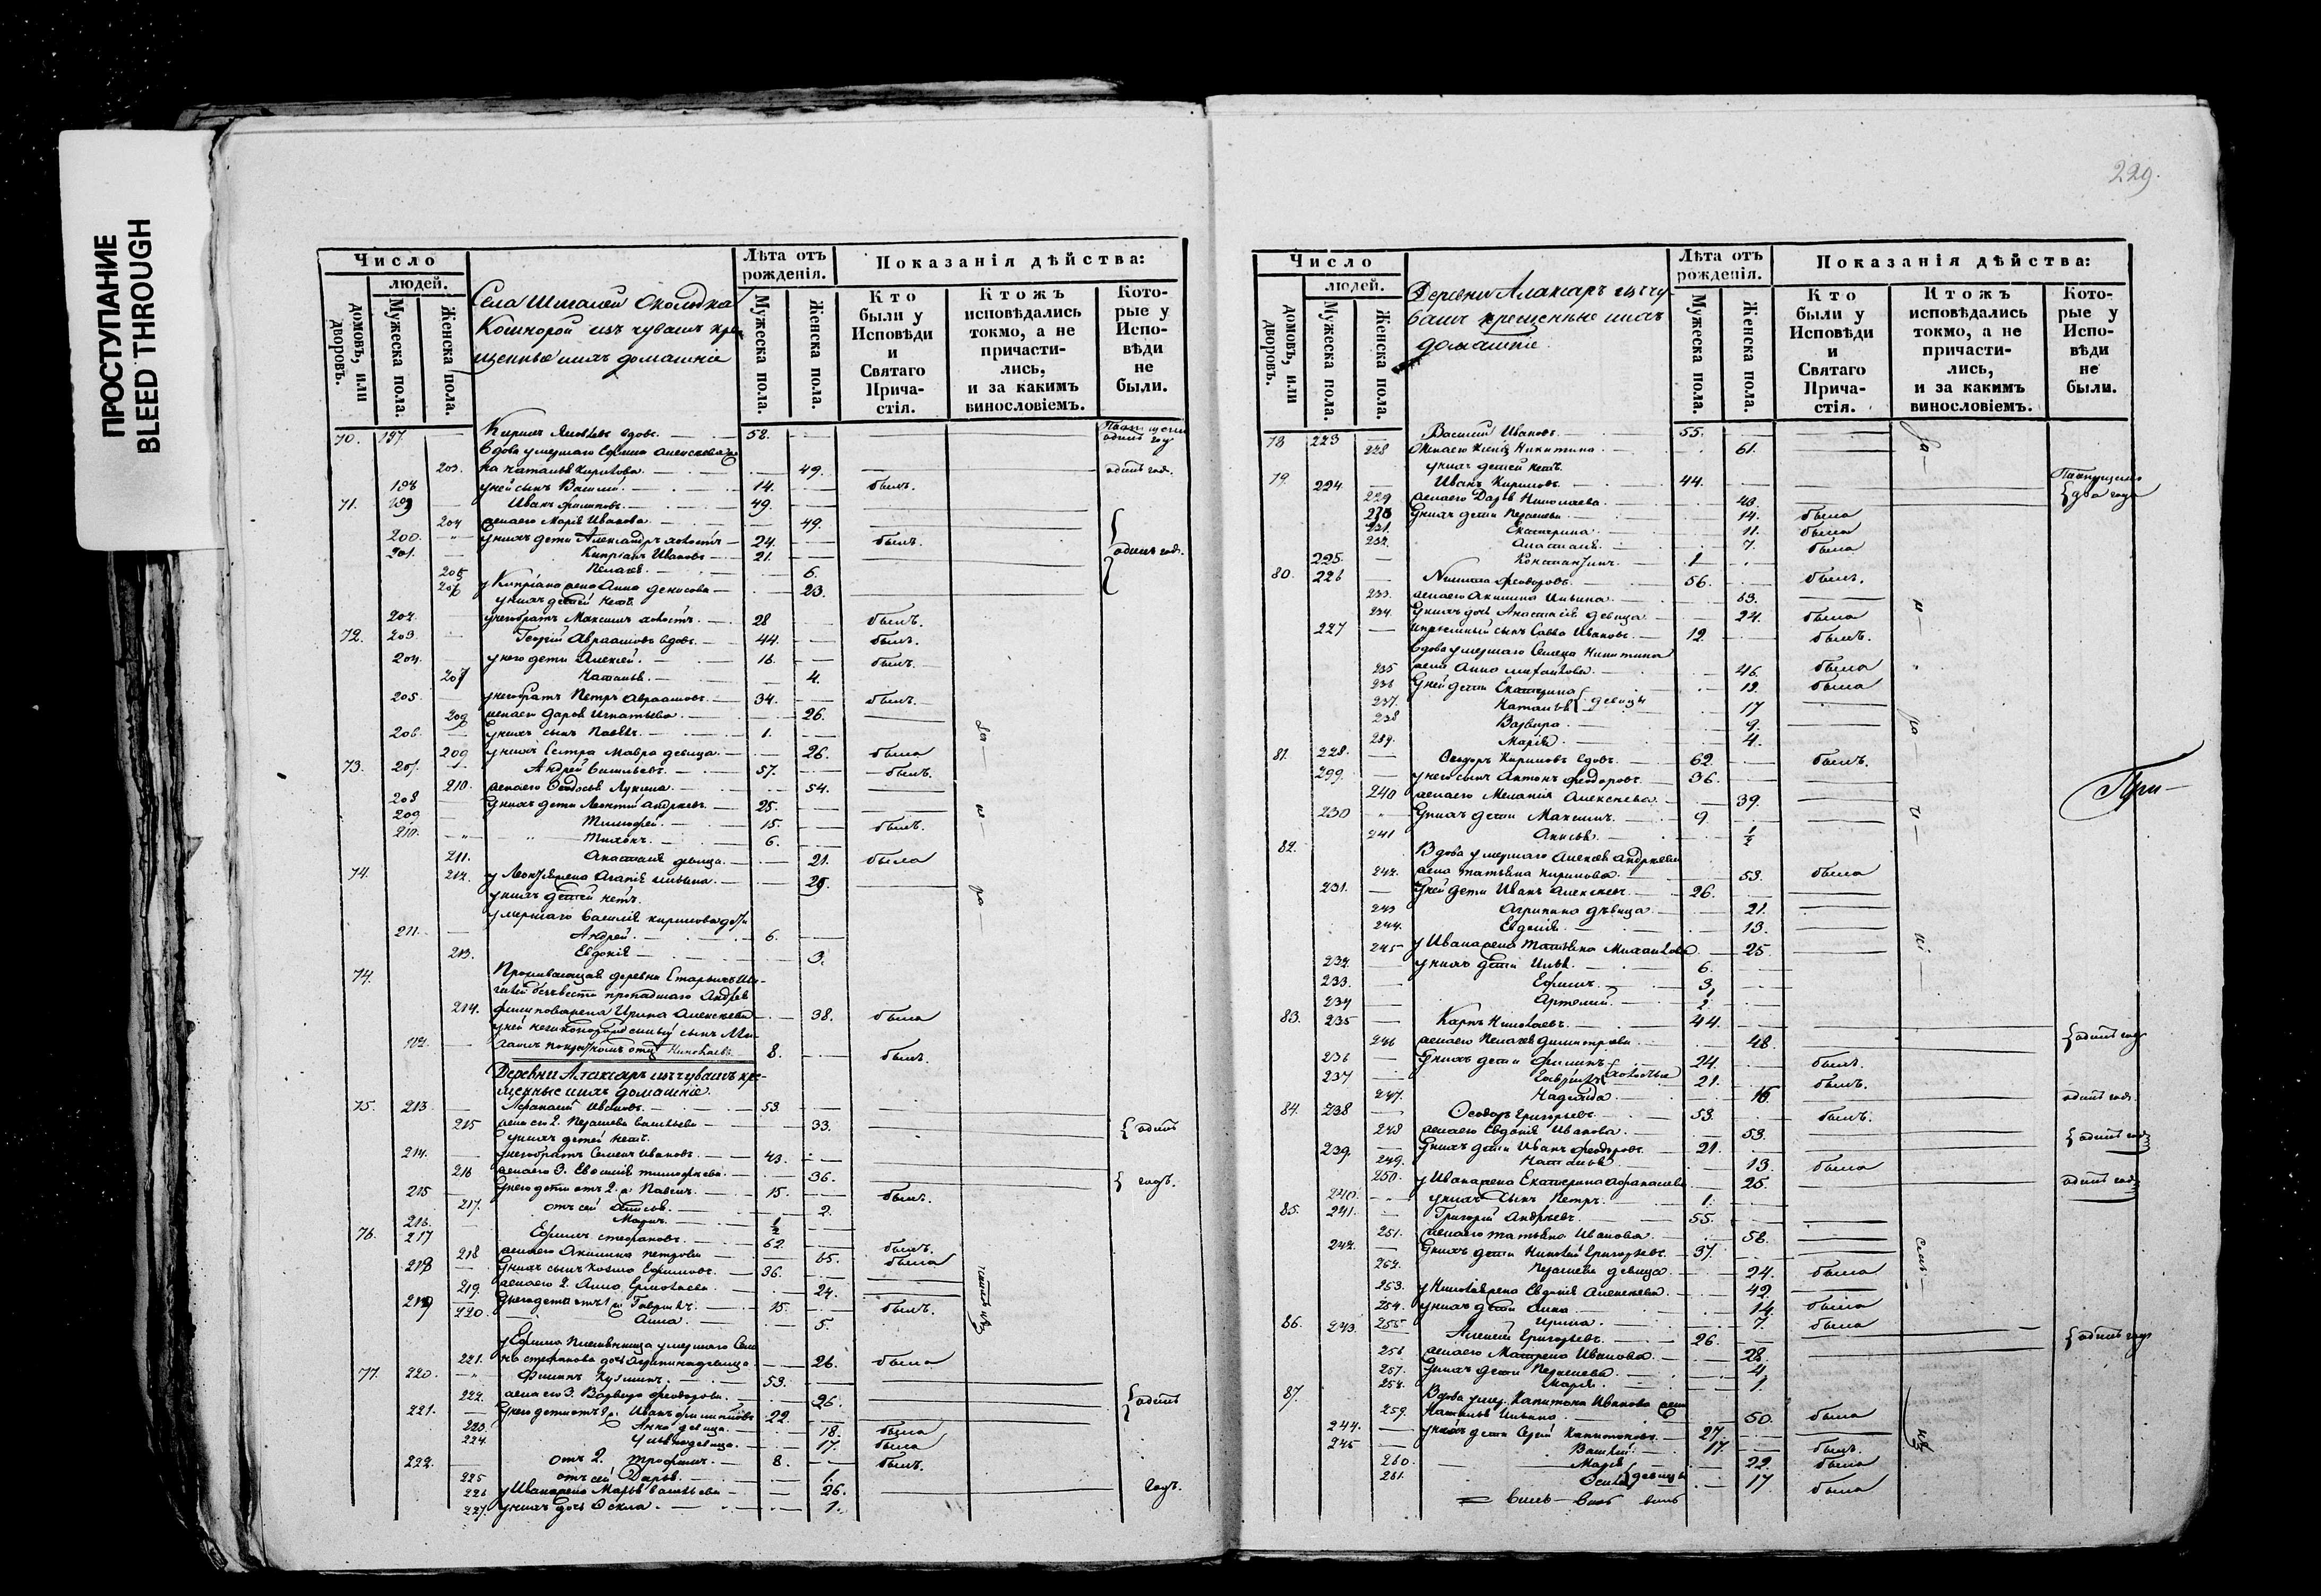 ПРОСТУПАНИЕ
BLEED THROUGH
Число
людей.
домовъ, или дворовъ.
Мужеска пола.
Женска пола.
Села Шигалей Околодка
Кошкорой изъ чувашъ кре-
щенные и ихъ домашніе
Лѣта отъ рожденія.
Мужеска пола.
Женска пола.
Показанія дѣйства:
Кто были у Исповѣди и Святаго Прича-стія.
Ктожъ исповѣдались токмо, а не причасти-лись, и за какимъ винословіемъ.
Кото-рые у Испо-вѣди не были.
70. 197. Кирилъ Яковлевъ вдовъ. 58.
Вдова умершаго Ефима Алексеева
203. Наталья Кирилова. 49. одинъ годъ.
198 у ней сынъ Василий. 14. былъ.
71. 199 Иванъ Филиповъ. 49.
204 жена его Марія Иванова. 49.
200. у нихъ дети Александръ холостъ 24. былъ.
201. Кипріанъ Ивановъ 21. одинъ годъ.
205 Пелагея. 6.
206 у Кипріана жена Анна Денисова 23.
у нихъ детей нетъ
202. у него братъ Максимъ холостъ. 28 былъ.
72. 203. Георгій Авраамовъ вдовъ. 44. былъ.
204. у него дети Алексей. 16. былъ.
207 Наталья. 4.
205. у него братъ Петръ Авраамовъ. 34. былъ.
208 жена его Дарья Игнатьева. 26.
206. у нихъ сынъ Павелъ. 1.
209 у нихъ сестра Мавра девица. 26. была
73. 207. Андрей Васильевъ. 57. былъ.
210. жена его Феодосья Лукина. 54.
208 у нихъ дети Леонтій Андреевъ. 25.
209 Тимофей. 15. былъ.
210. Тихонъ. 6.
211. Анастасія девица. 21. была
74. 212. у Леонтія жена Агапія Ильина. 25.
у нихъ детей нетъ.
умершаго Василія Кирилова дети
211. Андрей. 6.
213. Евдокія 3.
74. Проживающая деревни Старыхъ Ши-
галей безъ вести пропадшаго Андрея
214. Филипова жена Ирина Алексеева 38. была
212. 8. былъ.
Деревни Алаксаръ изъ чувашъ кре-
щенные и ихъ домашніе.
75. 213. Афанасій Ивановъ. 53.
215 жена его 2. Пелагея Васильева 33. одинъ
у нихъ детей нетъ.
214. у него братъ Семенъ Ивановъ. 43.
216 жена его 3. Евфимія Тимофеева. 36. годъ.
215 у него дети отъ 2. Павелъ. 15. былъ.
217. отъ сей Анисья. 2.
216. ½
76. 217 Ефимъ Стефановъ. 62. былъ.
218 жена его Акилина Петрова 65. была
218 у нихъ сынъ Козма Ефимовъ. 36.
219. жена его 2. Анна Ермолаева. 24.
219 у него дети отъ 1 Гаврилъ. 15. былъ.
220. Анна. 5.
у Ефима племянница умершаго Семе-
221. на Стефанова дочь Агрипина девица. 26. была
77. 220. Филипъ Кузминъ. 53.
222. жена его 3. Варвара Феодорова. 26. одинъ
221. у него дети отъ 1 Иванъ Филиповъ 22.
223. Анна девица. 18. была
224. Ульяна девица. 17. была
222. отъ 2. Трофимъ. 8. былъ.
225 отъ сей Дарья. 1.
226 у Ивана жена Марья Васильева 26. годъ.
227. у нихъ дочь Фекла. 1.
229.
Число
людей.
домовъ, или дворовъ.
Мужеска пола.
Женска пола.
Деревни Алаксаръ изъ чу-
вашъ крещенные и ихъ
домашніе.
Лѣта отъ рожденія.
Мужеска пола.
Женска пола.
Показанія дѣйства:
Кто были у Исповѣди и Святаго Прича-стія.
Ктожъ исповѣдались токмо, а не причасти-лись, и за какимъ винословіемъ.
Кото-рые у Испо-вѣди не были.
78 223 Василий Ивановъ. 55.
228 Жена его Ксенія Никитина 61.
у нихъ детей нетъ.
79. 224. Иванъ Кириловъ. 44. два года
229 жена его Дарья Николаева. 43.
230 у нихъ дети Пелагея 14. была
231. Екатерина. 11. была
232. Анастасія. 7. была
225. Константинъ. 1
80. 226 Никита Феодоровъ. 56. былъ.
233. жена его Акилина Ильина. 53.
234. у нихъ дочь Анастасія девица 24. была
227 и пріемный сынъ Савва Ивановъ. 12. былъ.
Вдова умершаго Семена Никитина
235 жена Анна Михайлова. 46. была
236 у ней дети Екатерина 19. была
237. Наталья девицы 17
238 Варвара 9.
239. Марія. 4.
81. 228. Феодоръ Кириловъ вдовъ. 62. былъ.
299. у него сынъ Антонъ Феодоровъ. 36.
240 жена его Меланія Алексеева. 39.
230 у нихъ дети Максимъ. 9.
241 Анисья. ½
82. Вдова умершаго Алексея Андреева
242. жена Татьяна Кирилова. 53. была
231. у ней дети Иванъ Алексеевъ. 26.
243 Агрипина девица 21.
244. Евдокія. 13.
245 у Ивана жена Татьяна Михайлова 25.
232. у нихъ дети Илья. 6.
233. Ефимъ. 3.
234 Артемий.
83. 235 Карпъ Николаевъ. 44.
246 жена его Пелагея Димитріева 48. одинъ годъ
236 у нихъ дети Филипъ 24. былъ.
237 Гаврилъ холостые 21. былъ.
247. Надежда 16. одинъ годъ
84. 238 Феодоръ Григорьевъ. 53. былъ.
248 жена его Евдокія Иванова. 53.
239 у нихъ дети Иванъ Феодоровъ. 21. одинъ годъ
249. Наталья 13. была
250. у Ивана жена Екатерина Афанасьева 25. одинъ годъ
240. у нихъ сынъ Петръ. 1.
85. 241. Григорий Андреевъ. 55.
251. жена его Татьяна Иванова. 56.
242. у нихъ дети Николай Григорьевъ. 37.
252. Пелагея девица. 24. была
253. у Николая жена Евдокія Алексеева. 42.
254. у нихъ дети Анна 14. была
255 Ирина. 7. была
86. 243. Алексей Григорьевъ. 26. одинъ годъ
256 жена его Матрена Иванова. 28.
257. у нихъ дети Пелагея. 4.
258. Марія. 1.
87. Вдова умер. Капитона Иванова жена
259. Наталья Ильина. 50. была
244. у нихъ дети Сергій Капитоновъ. 27.
245 Василий. 17. былъ.
260. Марія 22. была
261. девицы 17. была
При-